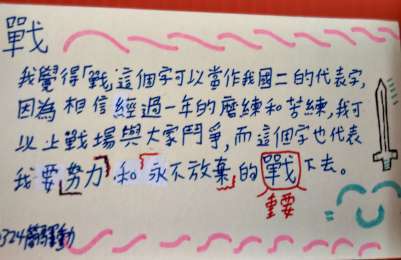 戰
我覺得「戰」這個字可以當作我國二的代表字,
因為相信經過一年的磨練和苦練,我可
以上戰場與大家鬥爭,而這個字也代表
我要努力和「永不放棄」的戰下去。
重要